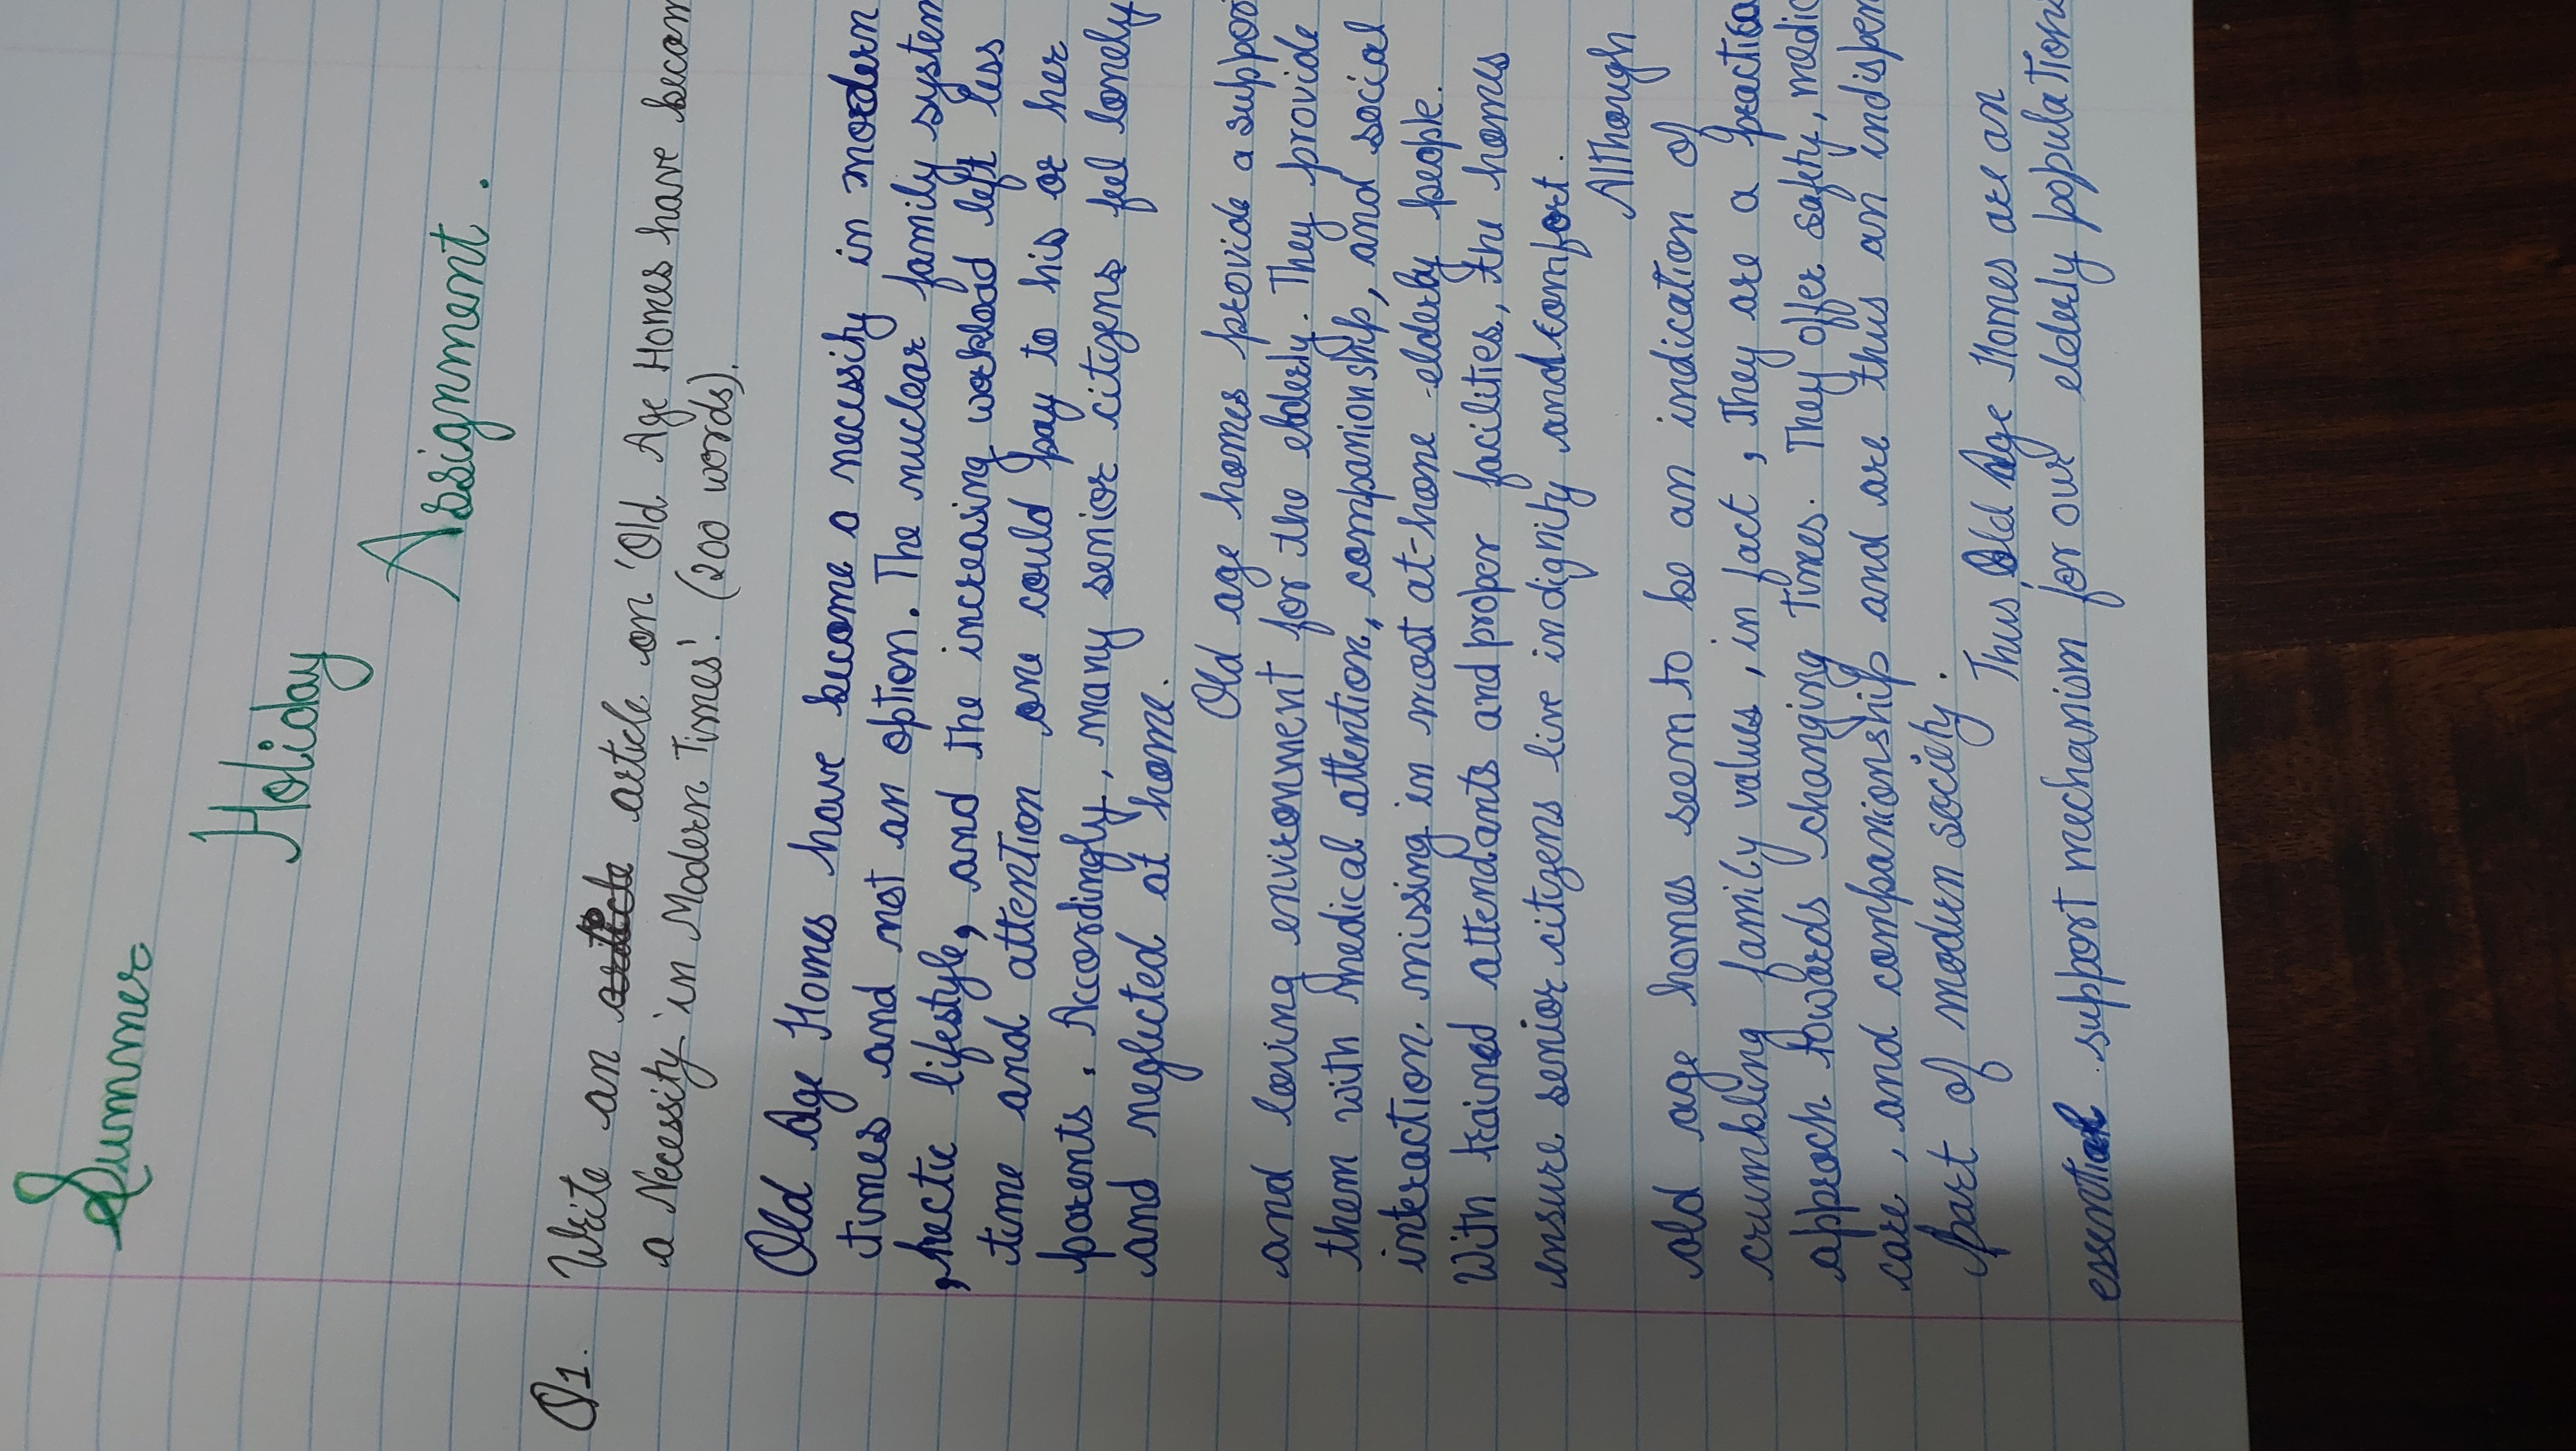 Summer
Holiday
Assignment.
Q1. Write an article on 'Old Age Homes have becom
a Necessity in Modern Times'. (200 words).
Old Age Homes have become a necessity in modern
times and not an option. The nuclear family system
, hectic lifestyle, and the increasing workload left less
time and attention one could pay to his or her
parents. Accordingly, many senior citizens feel lonely
and neglected at home.
Old age homes provide a suppor
and loving environment for the elderly. They provide
them with medical attention, companionship, and social
interaction missing in most at-home elderly people.
With trained attendants and proper facilities, the homes
ensure senior citizens live in dignity and comfort.
Although
old age homes seem to be an indication of
crumbling family values, in fact, They are a practica
approch towards changing times. They offer safety, medic
care, and companionship and are thus an indispen
part of modern society.
Thus Old Age Homes are an
essential support mechanism for our elderly population